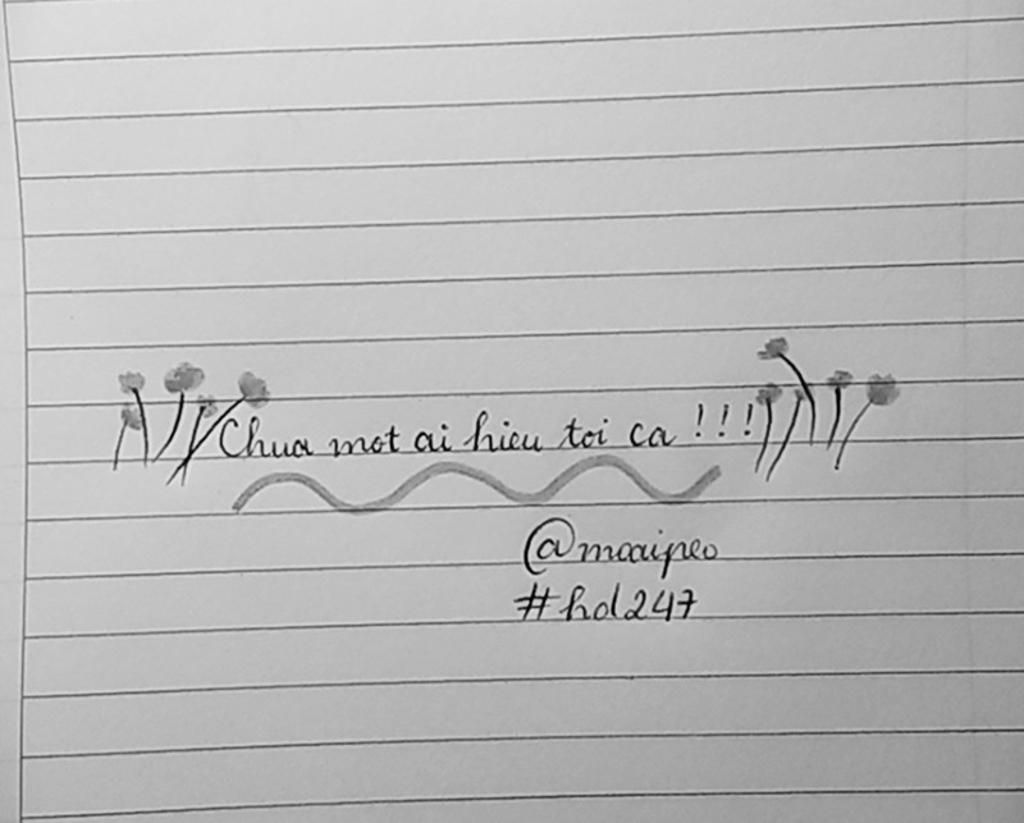 Chua mot ai hieu toi ca !!!
@moaipeo
#hd247